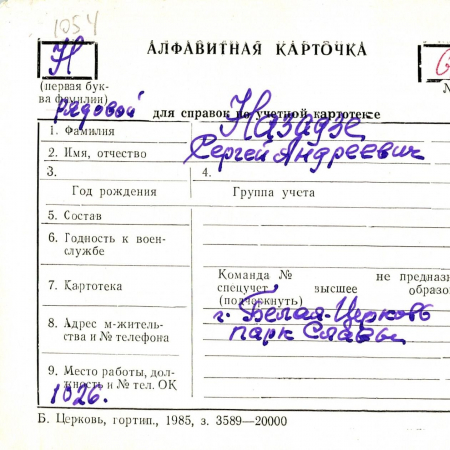 1054
Н АЛФАВИТНАЯ КАРТОЧКА
(первая бук-
ва фамилии)
рядовой для справок по учетной картотеке
1. Фамилия Назадзе
2. Имя, отчество Сергей Андреевич
3. 4.
Год рождения Группа учета
5. Состав
6. Годность к воен-
службе
7. Картотека Команда № не предназн
спецучет высшее образо
(подчеркнуть)
8. Адрес м-житель-
ства и № телефона г. Белая-Церковь
парк Славы
9. Место работы, дол-
жность и № тел. ОК
1026.
Б. Церковь, гортип., 1985, з. 3589—20000